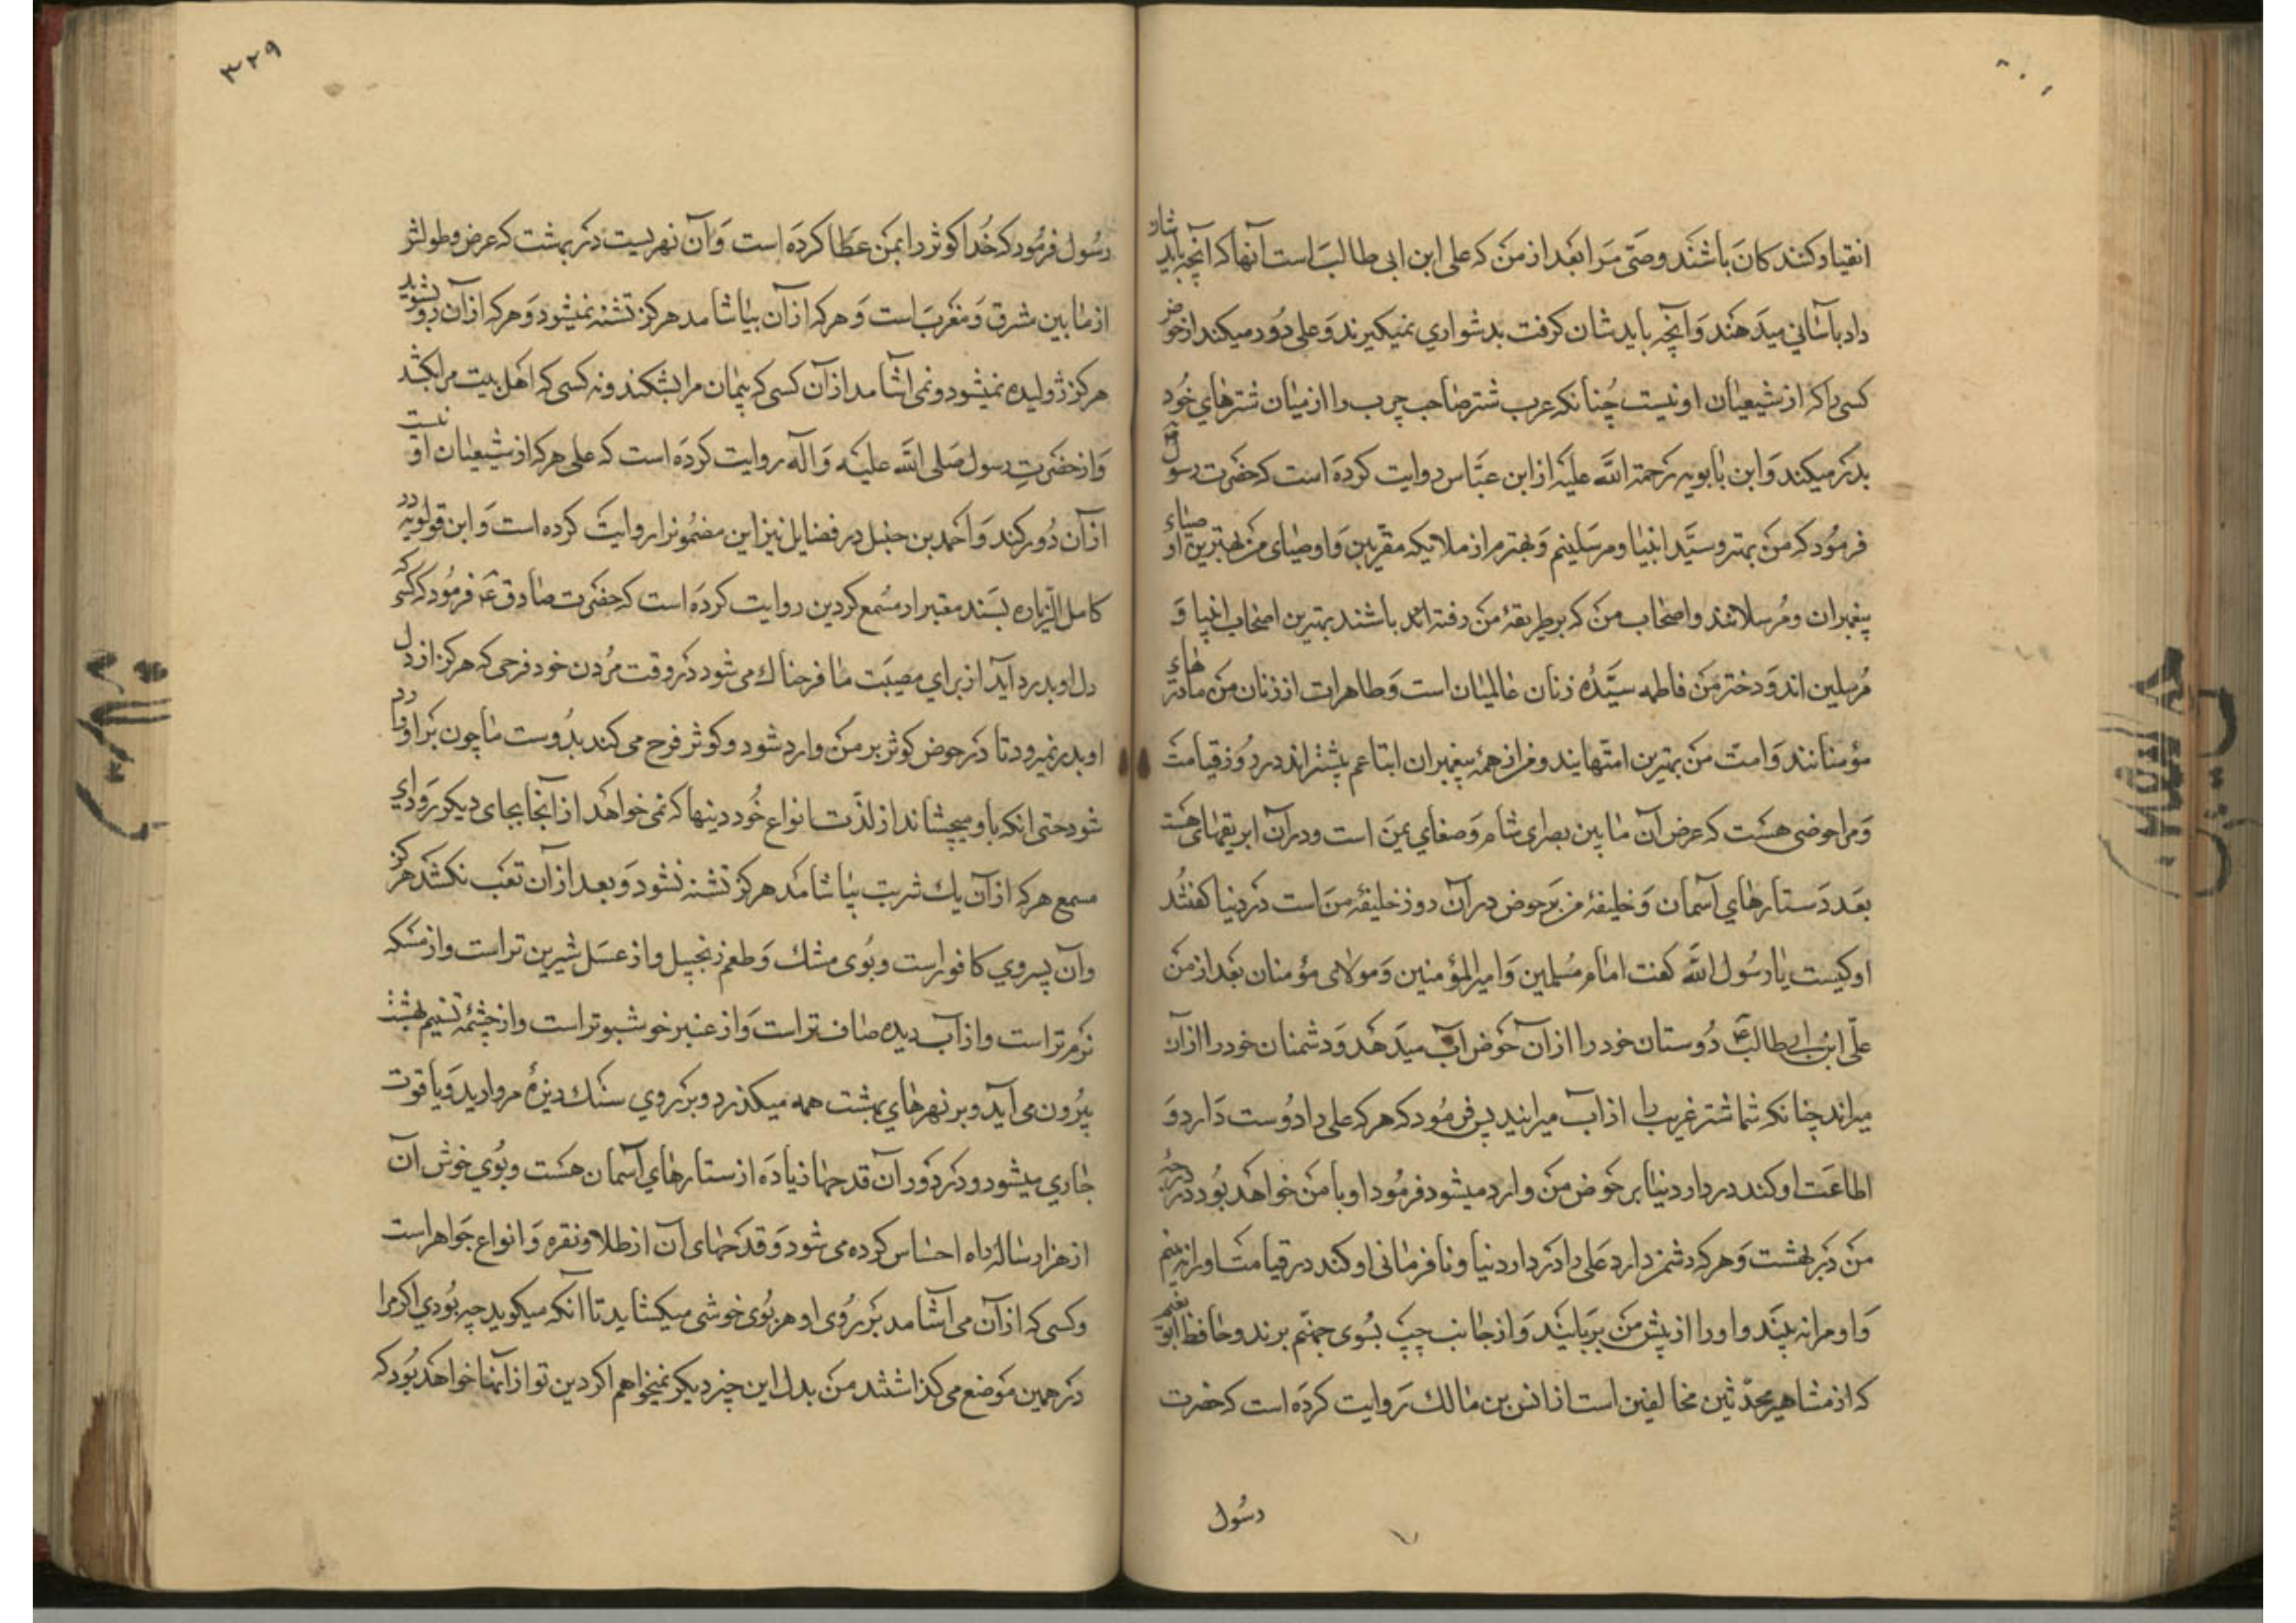 انقیاد کنندکان باشند وصیّ مرا بعد از من که علی ابن ابی طالب است آنها که آنچه باید شان
داد بآسانی میدهند و آنچه باید شان کرفت بدشواری نمیکیرند و علی دور میکند از حوض
کسی را که از شیعیان او نیست چنانکه عرب شتر صاحب جرب را از میان شترهای خود
بدر میکند و ابن بابویه رحمة الله علیه از ابن عبّاس روایت کرده است که حضرت رسول
فرمود که من بهتر و سیّد انبیا و مرسلینم و بهترم از ملایکه مقرّبین و اوصیای من بهترین اوصیاء
پیغمبران و مرسلانند و اصحاب من که بر طریقۀ من رفته اند باشند بهترین اصحاب انبیا و
مرسلین اند و دختر من فاطمه سیّدۀ زنان عالمیان است و طاهرات از زنان من مادرهای
مؤمنانند و امت من بهترین امتهایند و من از همۀ پیغمبران اتباعم بیشتراند در روز قیامت
و مرا حوضی هست که عرض آن ما بین بصرای شام و صنعای یمن است و در آن ابریقهای هست
بعدد ستارهای آسمان و خلیفۀ من بر حوض در آن روز خلیفۀ من است در دنیا کفتند
او کیست یا رسول الله کفت امام مسلمین و امیرالمؤمنین و مولای مؤمنان بعد از من
علّی ابن ابی طالب ع دوستان خود را از آن حوض آب میدهد و دشمنان خود را از آن
میراند چنانکه شما شتر غریب را از آب میرانید پس فرمود که هر که علی را دوست دارد و
اطاعت او کند در دار دنیا بر حوض من وارد میشود فرمود او با من خواهد بود در درجۀ
من در بهشت و هر که دشمن دارد علی را در دار دنیا و نافرمانی او کند در قیامت او را نه بینم
و او مرا نه بیند و او را از پیش من بربایند و از جانب چپ بسوی جهنّم برند و حافظ ابو نعیم
که از مشاهیر محدّثین مخالفین است از انس بن مالک روایت کرده است که حضرت
رسول
۳۲۹
رسول فرمود که خدا کوثر را بمن عطا کرده است و آن نهریست در بهشت که عرض و طولش
از ما بین مشرق و مغرب است و هر که از آن بیاشامد هرکز تشنه نمیشود و هر که از آن رو بشوید
هرکز ژولیده نمیشود و نمی آشامد از آن کسی که پیمان مرا بشکند و نه کسی که اهل بیت مرا بکشد
و از حضرت رسول صلی الله علیه و آله روایت کرده است که علی هر که از شیعیان او نیست
از آن دور کند و احمد بن حنبل در فضایل نیز این مضمونرا روایت کرده است و ابن قولویه در
کامل الزیاره بسند معتبر از مسمع کردین روایت کرده است که حضرت صادق ع فرمود که کسی که
دل او بدرد آید از برای مصیبت ما فرحناک می شود در وقت مردن خود فرحی که هرکز از دل
او بدر نمیرود تا در حوض کوثر بر من وارد شود و کوثر فرح می کند بدوست ما چون بر او وارد
شود حتی انکه باو میچشاند از لذّت انواع خوردینها که نمی خواهد از آنجا بجای دیکر رود ای
مسمع هر که از آن یک شربت بیاشامد هرکز تشنه نشود و بعد از آن تعب نکشد هرکز
و آن بسردی کافور است و بوی مشک و طعم زنجبیل و از عسل شیرین تر است و از مسکه
نرم تر است و از آب دیده صاف تر است و از عنبر خوشبوتر است و از چشمۀ تسنیم بهشت
بیرون می آید و بر نهرهای بهشت همه میکذرد و بر روی سنک ریزۀ مروارید و یاقوت
جاری میشود و در دور آن قدحها زیاده از ستارهای آسمان هست و بوی خوش آن
از هزار ساله راه احساس کرده می شود و قدحهای آن از طلا و نقره و انواع جواهر است
و کسی که از آن می آشامد بر روی او هر بوی خوشی میکشاید تا انکه میکوید چه بودی اکر مرا
در همین موضع می کذاشتند من بدل این چیز دیکر نمیخواهم ا کردین تو از آنها خواهد بود که